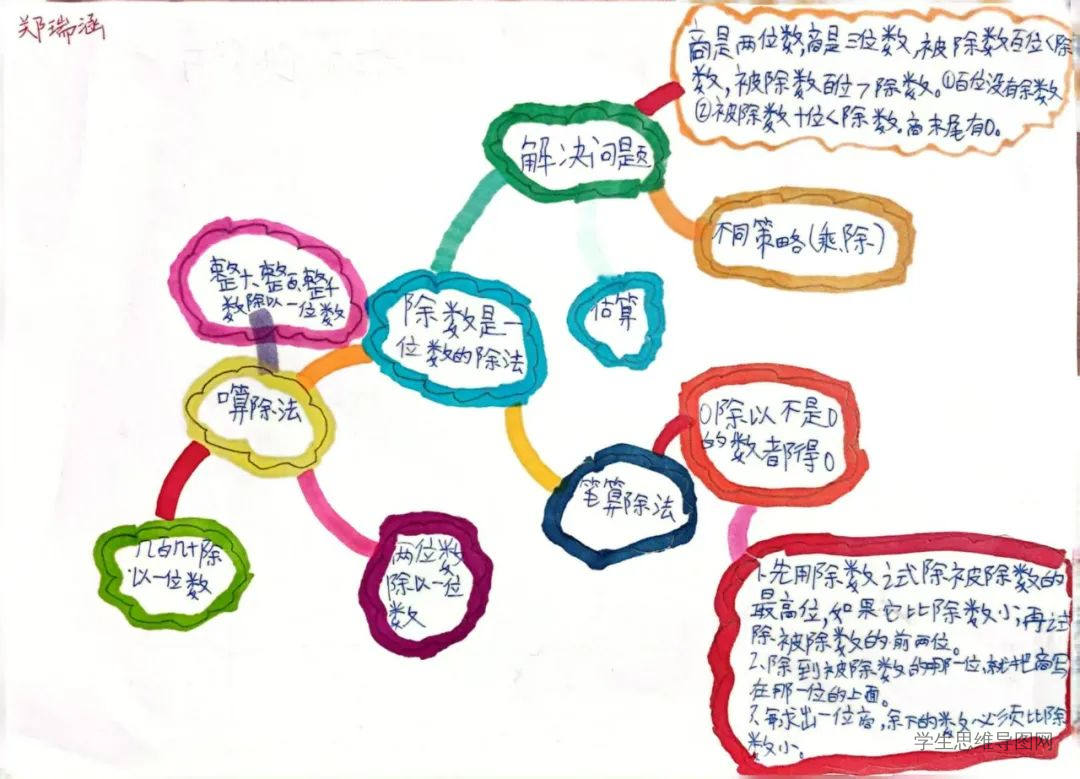 郑瑞涵
商是两位数,商是三位数,被除数百位<除
数,被除数百位>除数。①百位没有余数
②被除数十位<除数.商末尾有0。
解决问题
不同策略(乘.除)
估算
整十、整百、整千
数除以一位数
除数是一
位数的除法
口算除法
几百几十除
以一位数
两位数
除以一位
数
笔算除法
0除以不是0
的数都得0
1.先用除数试除被除数的
最高位,如果它比除数小;再试
除被除数的前两位。
2.除到被除数的那一位,就把商写
在那一位的上面。
3.每求出一位商,余下的数必须比除
数小。
学生思维导图网